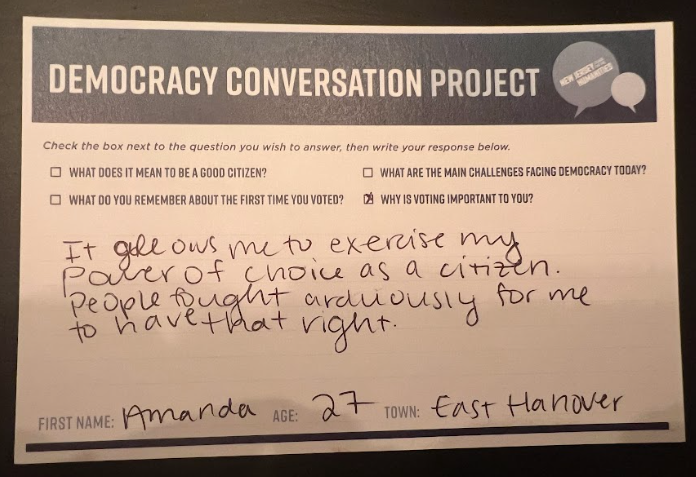 DEMOCRACY CONVERSATION PROJECT
NEW JERSEY
HUMANITIES
Check the box next to the question you wish to answer, then write your response below.
WHAT DOES IT MEAN TO BE A GOOD CITIZEN?
WHAT ARE THE MAIN CHALLENGES FACING DEMOCRACY TODAY?
WHAT DO YOU REMEMBER ABOUT THE FIRST TIME YOU VOTED?
WHY IS VOTING IMPORTANT TO YOU?
It allows me to exercise my
power of choice as a citizen.
People fought arduously for me
to have that right.
FIRST NAME: Amanda AGE: 27 TOWN: East Hanover